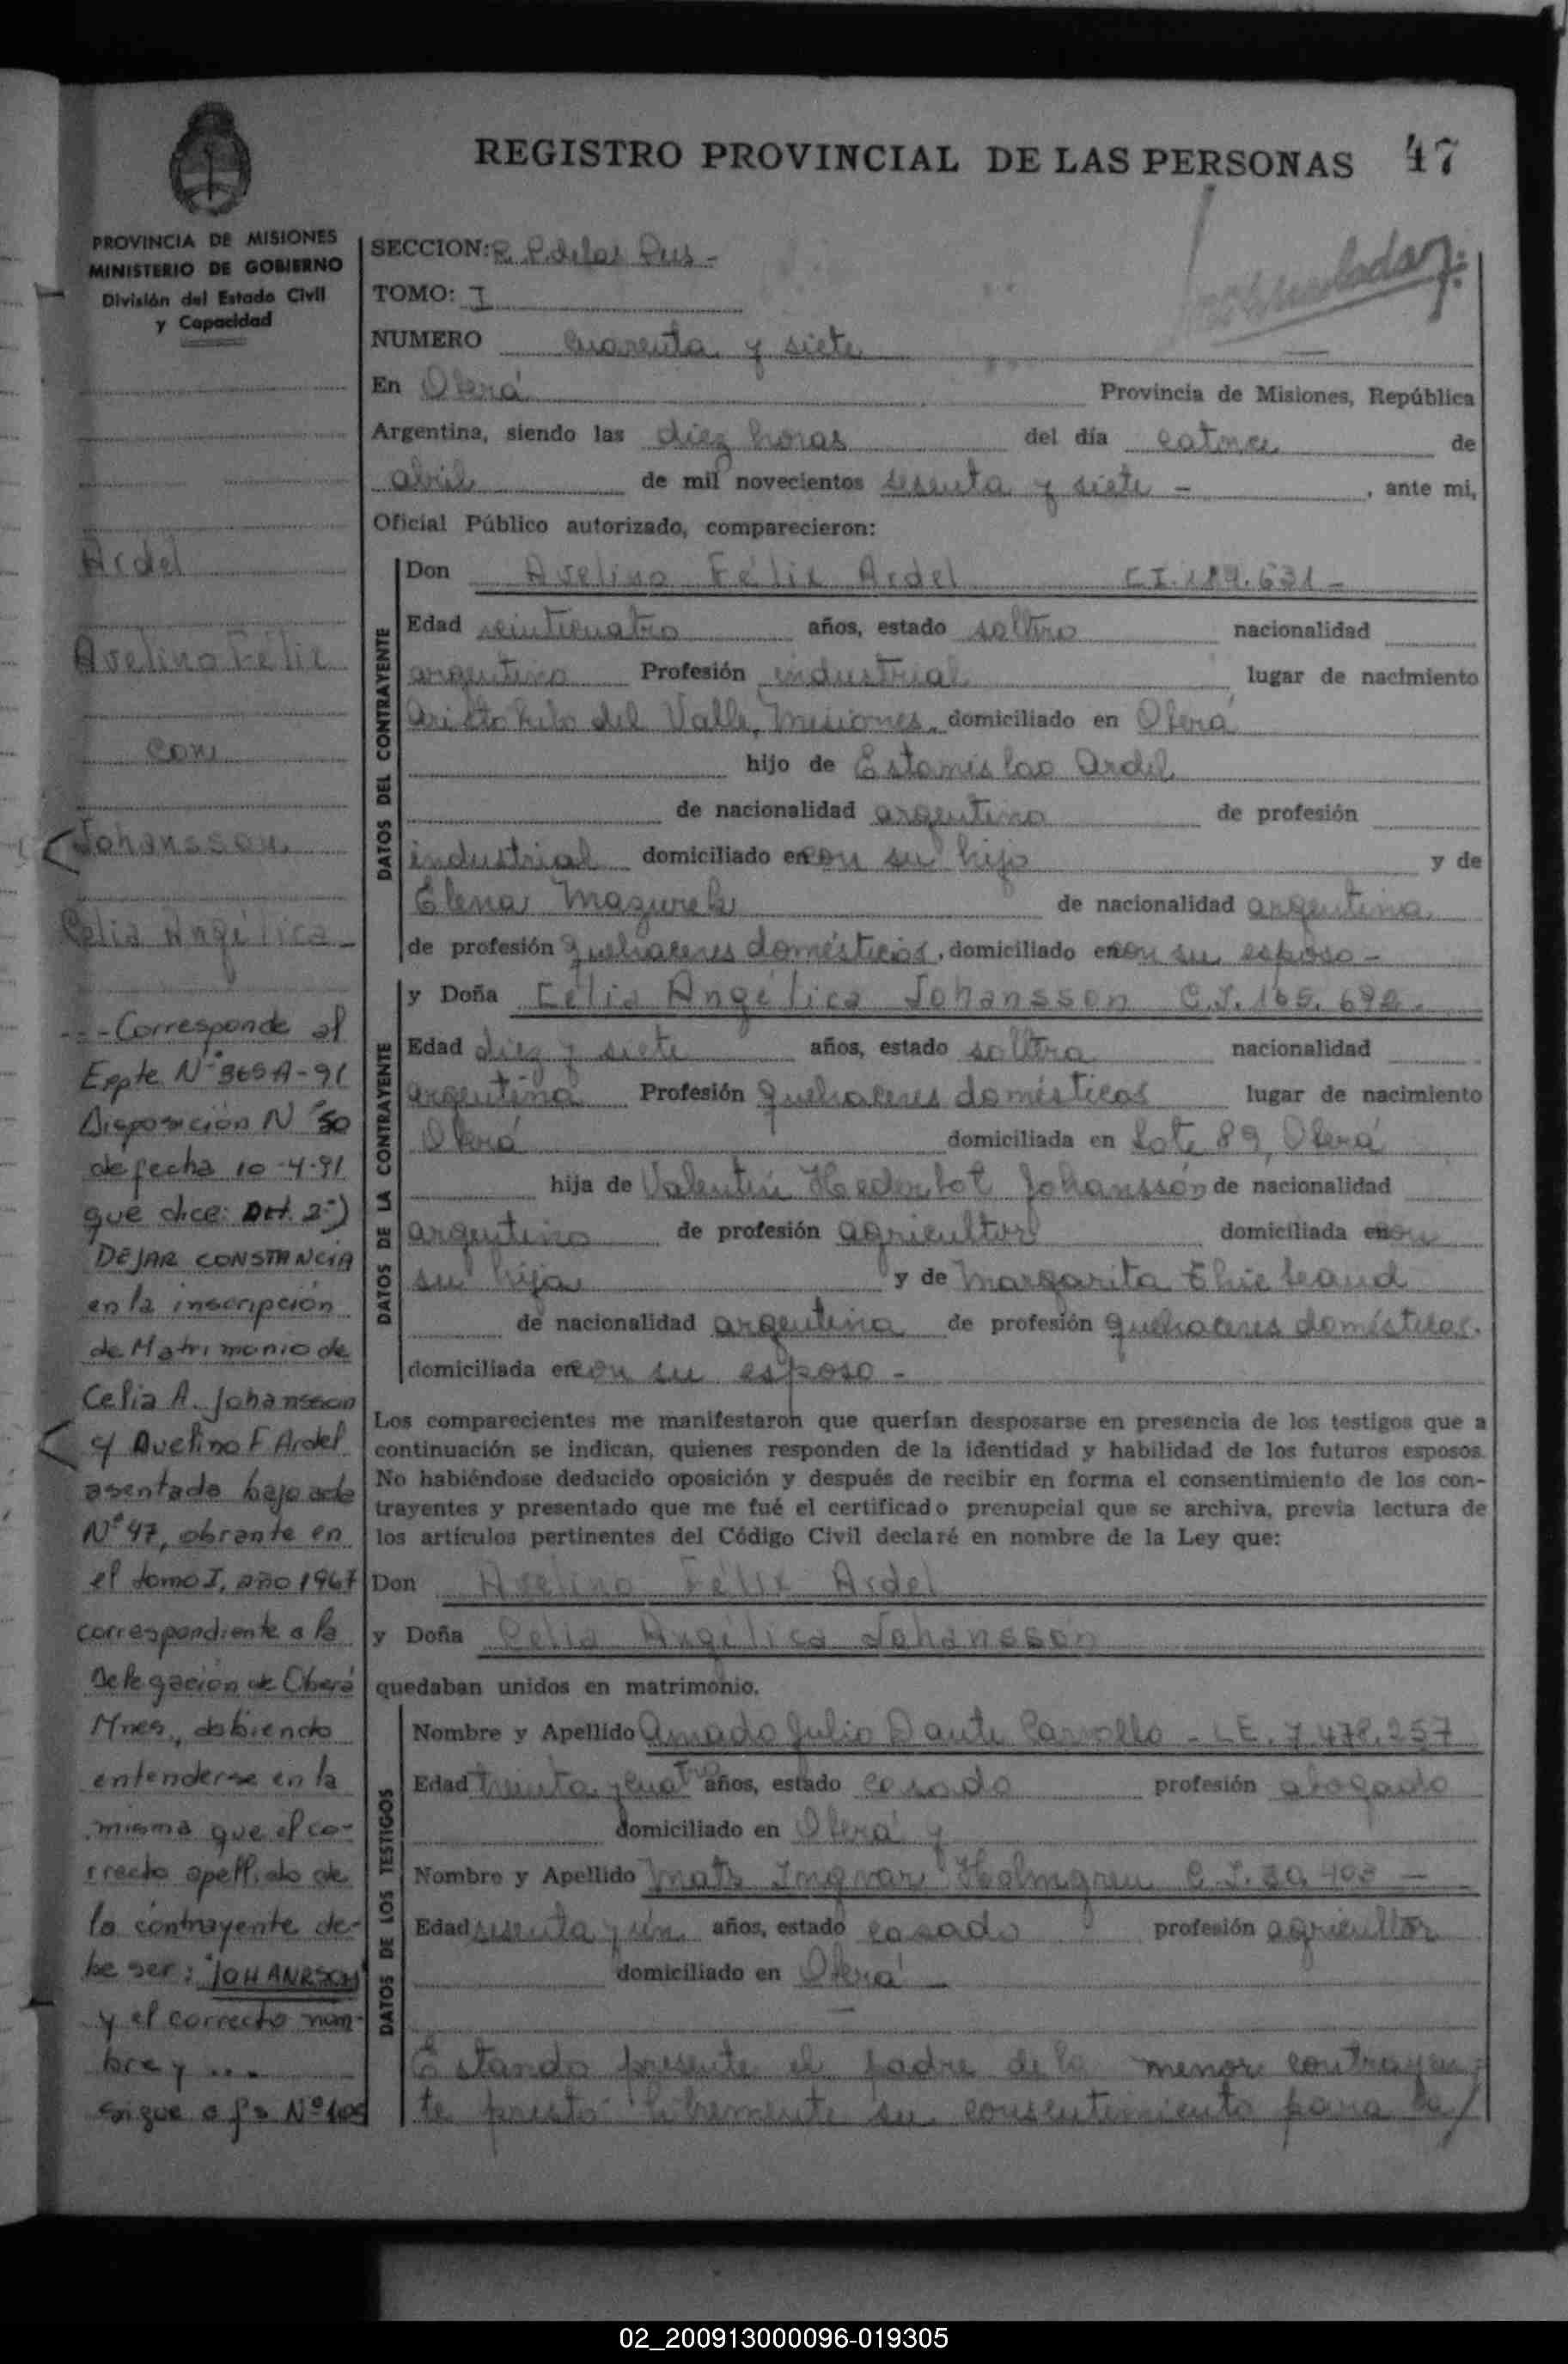 REGISTRO PROVINCIAL DE LAS PERSONAS 47
PROVINCIA DE MISIONES
MINISTERIO DE GOBIERNO
División del Estado Civil
y Capacidad
Ardel
Avelino Félix
con
Johansson
Celia Angélica
- - Corresponde al
Expte N° 365 A-91
Disposición N° 50
de fecha 10-4-91
que dice: Art. 2°)
DEJAR CONSTANCIA
en la inscripción
de Matrimonio de
Celia A. Johansson
y Avelino F Ardel
asentada bajo acta
N° 47, obrante en
el tomo I, año 1967
correspondiente a la
Delegación de Oberá
Mnes., debiendo
entenderse en la
misma que el co-
rrecto apellido de
la contrayente de-
be ser:
y el correcto nom-
bre y ...
sigue a fs Nº
SECCION: R. P. de las Pers -
TOMO: I
NUMERO cuarenta y siete
En Oberá Provincia de Misiones, República
Argentina, siendo las diez horas del día catorce de
abril de mil novecientos sesenta y siete - , ante mi,
Oficial Público autorizado, comparecieron:
DATOS DEL CONTRAYENTE
Don Avelino Félix Ardel C.I. 189.631 -
Edad veinticuatro años, estado soltero nacionalidad
argentino Profesión industrial lugar de nacimiento
Aristóbulo del Valle, Misiones, domiciliado en Oberá
hijo de Estanislao Ardel
de nacionalidad argentino de profesión
industrial domiciliado en con su hijo y de
Elena Mazurek de nacionalidad argentina
de profesión quehaceres domésticos, domiciliado en con su esposo -
DATOS DE LA CONTRAYENTE
y Doña Celia Angélica Johansson C.I. 165.692.
Edad diez y siete años, estado soltera nacionalidad
argentina Profesión quehaceres domésticos lugar de nacimiento
Oberá domiciliada en Lote 89, Oberá
hija de Valentín Johansson de nacionalidad
argentino de profesión agricultor domiciliada en con
su hija y de Margarita
de nacionalidad argentina de profesión quehaceres domésticos.
domiciliada en con su esposo -
Los comparecientes me manifestaron que querían desposarse en presencia de los testigos que a
continuación se indican, quienes responden de la identidad y habilidad de los futuros esposos.
No habiéndose deducido oposición y después de recibir en forma el consentimiento de los con-
trayentes y presentado que me fué el certificado prenupcial que se archiva, previa lectura de
los artículos pertinentes del Código Civil declaré en nombre de la Ley que:
Don Avelino Félix Ardel
y Doña Celia Angélica Johansson
quedaban unidos en matrimonio.
DATOS DE LOS TESTIGOS
Nombre y Apellido Amado Julio Dante Carvallo - L.E. 7.478.257
Edad treinta y cuatro años, estado casado profesión abogado
domiciliado en Oberá y
Nombre y Apellido Mats Ingvar Holmgren C.I. 30.403 -
Edad sesenta y un años, estado casado profesión agricultor
domiciliado en Oberá -
Estando presente el padre de la menor contrayen-
te prestó libremente su consentimiento para la/
02_200913000096-019305